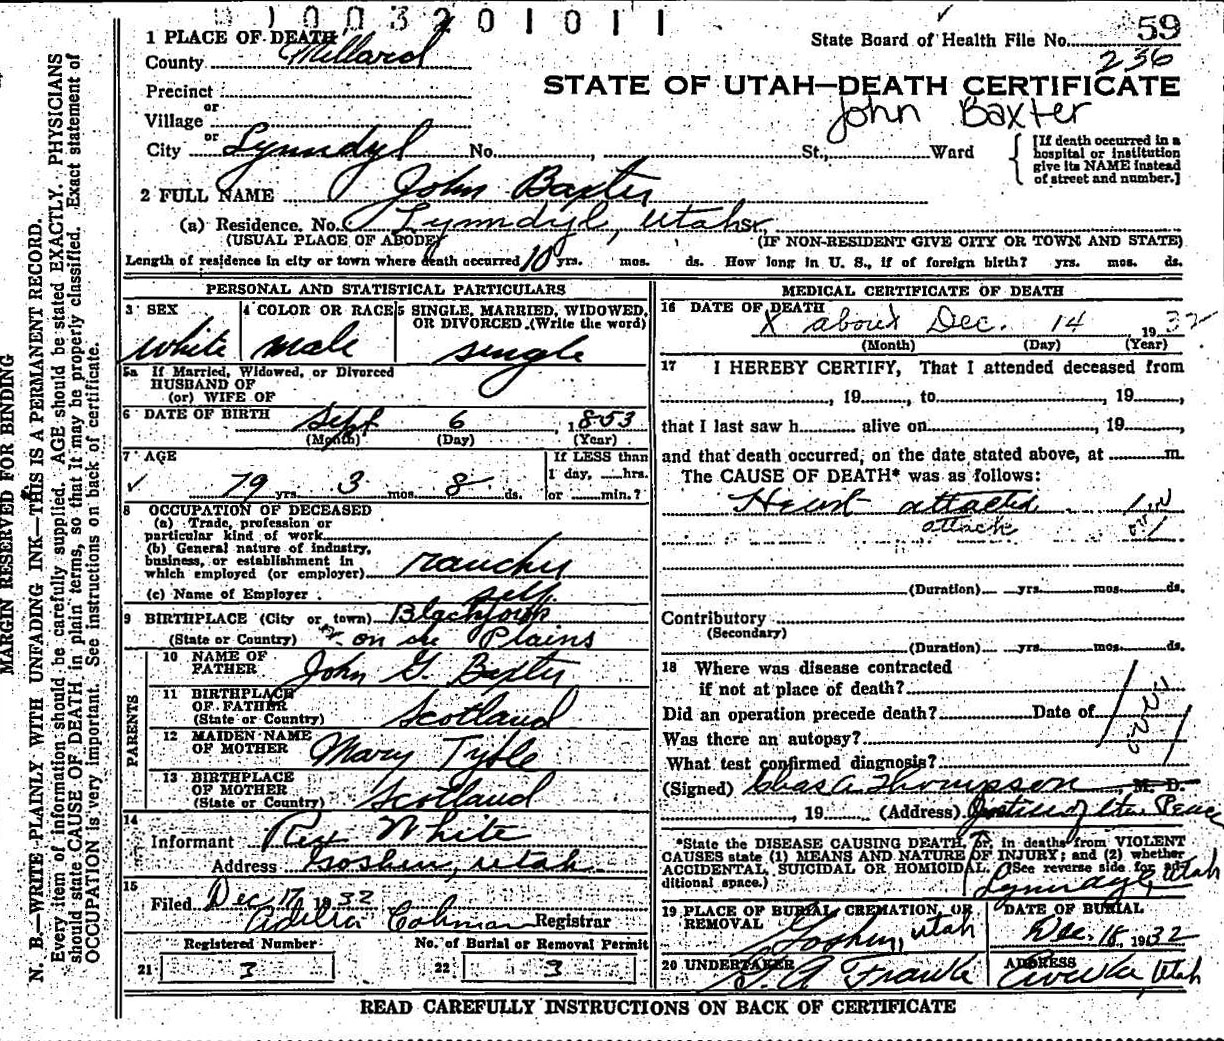 1003201011
1 PLACE OF DEATH
County Millard
State Board of Health File No. 59
236
Precinct
or
Village
or
City Lynndyl No. , St., Ward
STATE OF UTAH—DEATH CERTIFICATE
John Baxter
[If death occurred in a hospital or institution give its NAME instead of street and number.]
2 FULL NAME John Baxter
(a) Residence. No. Lynndyl, Utah St.,
(USUAL PLACE OF ABODE) (IF NON-RESIDENT GIVE CITY OR TOWN AND STATE)
Length of residence in city or town where death occurred 10 yrs. mos. ds. How long in U. S., if of foreign birth? yrs. mos. ds.
PERSONAL AND STATISTICAL PARTICULARS
3 SEX white
4 COLOR OR RACE male
5 SINGLE, MARRIED, WIDOWED, OR DIVORCED. (Write the word) single
5a If Married, Widowed, or Divorced
HUSBAND OF
(or) WIFE OF
6 DATE OF BIRTH Sept 6, 1853
(Month) (Day) (Year)
7 AGE
79 yrs. 3 mos. 8 ds.
If LESS than 1 day, hrs. or min.?
8 OCCUPATION OF DECEASED
(a) Trade, profession or particular kind of work
(b) General nature of industry, business, or establishment in which employed (or employer) rancher
(c) Name of Employer self
9 BIRTHPLACE (City or town)
(State or Country) on the Plains
PARENTS
10 NAME OF FATHER John G. Baxter
11 BIRTHPLACE OF FATHER (State or Country) Scotland
12 MAIDEN NAME OF MOTHER Mary
13 BIRTHPLACE OF MOTHER (State or Country) Scotland
14
Informant Rex White
Address Goshen, Utah
15
Filed Dec 17 1932
Registrar
Registered Number
21 3
No. of Burial or Removal Permit
22 3
MEDICAL CERTIFICATE OF DEATH
16 DATE OF DEATH
X about Dec. 14 1932
(Month) (Day) (Year)
17 I HEREBY CERTIFY, That I attended deceased from
, 19 , to , 19 ,
that I last saw h alive on , 19 ,
and that death occurred, on the date stated above, at m.
The CAUSE OF DEATH* was as follows:
Heart attacted
attack
(Duration) yrs. mos. ds.
Contributory
(Secondary)
(Duration) yrs. mos. ds.
18 Where was disease contracted
if not at place of death?
Did an operation precede death? Date of
Was there an autopsy?
What test confirmed diagnosis?
(Signed) Chas A Thompson, M. D.
, 19 (Address) Justice of the Peace
Lynndyl, Utah
*State the DISEASE CAUSING DEATH, or, in deaths from VIOLENT
CAUSES state (1) MEANS AND NATURE OF INJURY; and (2) whether
ACCIDENTAL, SUICIDAL OR HOMICIDAL. (See reverse side for ad-
ditional space.)
19 PLACE OF BURIAL CREMATION, OR REMOVAL Goshen, Utah
DATE OF BURIAL Dec. 18, 1932
20 UNDERTAKER
ADDRESS Utah
READ CAREFULLY INSTRUCTIONS ON BACK OF CERTIFICATE
MARGIN RESERVED FOR BINDING
N. B.—WRITE PLAINLY WITH UNFADING INK—THIS IS A PERMANENT RECORD.
Every item of information should be carefully supplied. AGE should be stated EXACTLY. PHYSICIANS
should state CAUSE OF DEATH in plain terms, so that it may be properly classified. Exact statement of
OCCUPATION is very important. See instructions on back of certificate.